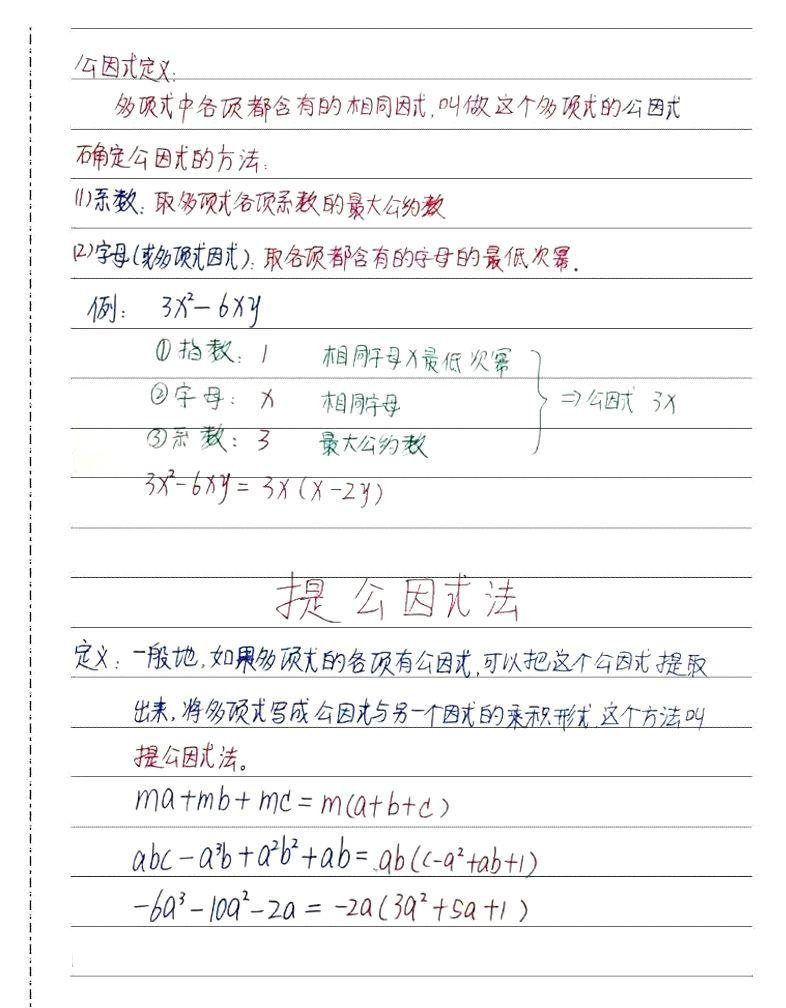 公因式定义:
多项式中各项都含有的相同因式,叫做这个多项式的公因式
确定公因式的方法:
(1)系数:取多项式各项系数的最大公约数
(2)字母(或多项式因式):取各项都含有的字母的最低次幂.
例: 3x²-6xy
①指数: 1 相同字母x最低次幂
②字母: x 相同字母 ⇒公因式 3x
③系数: 3 最大公约数
3x²-6xy= 3x(x-2y)
提公因式法
定义:一般地,如果多项式的各项有公因式,可以把这个公因式提取
出来,将多项式写成公因式与另一个因式的乘积形式,这个方法叫
提公因式法。
ma+mb+mc=m(a+b+c)
abc-a³b+a²b²+ab=ab(c-a²+ab+1)
-6a³-10a²-2a = -2a(3a²+5a+1)